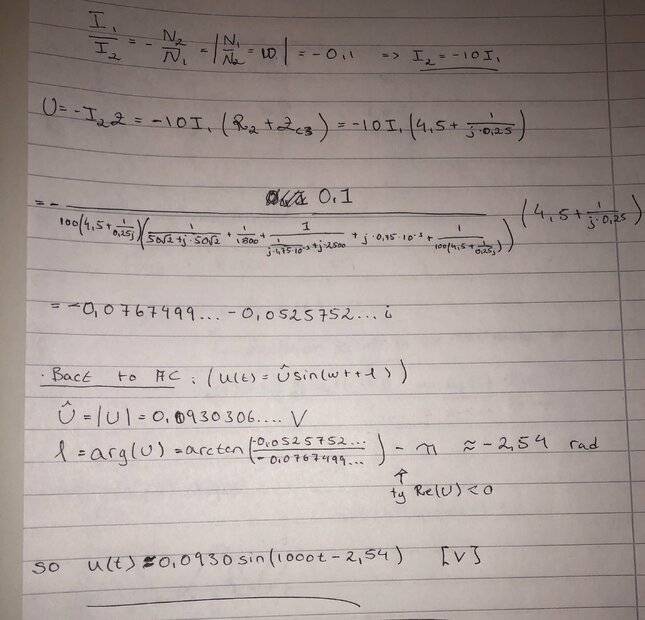 I₁/I₂ = - N₂/N₁ = |N₁/N₂ = 10| = -0,1 => I₂ = -10I₁
U = -I₂Z = -10I₁ (R₂ + Z_C3) = -10I₁ (4,5 + 1/(j·0,25))
= - 0.1/(100(4,5 + 1/(0,25j))(1/(50√2 + j·50√2) + 1/1800 + 1/(1/(j·4,75·10⁻³) + j·2500) + j·0,75·10⁻³ + 1/(100(4,5 + 1/(0,25j))))) (4,5 + 1/(j·0,25))
= -0,0767499... - 0,0525752... i
· Bact to AC: (u(t) = Û sin(wt + φ))
Û = |U| = 0,0930306.... V
φ = arg(U) = arctan(-0,0525752.../-0,0767499...) - π ≈ -2,54 rad
↑
ty Re(U) < 0
so u(t) ≈ 0,0930 sin(1000t - 2,54) [V]